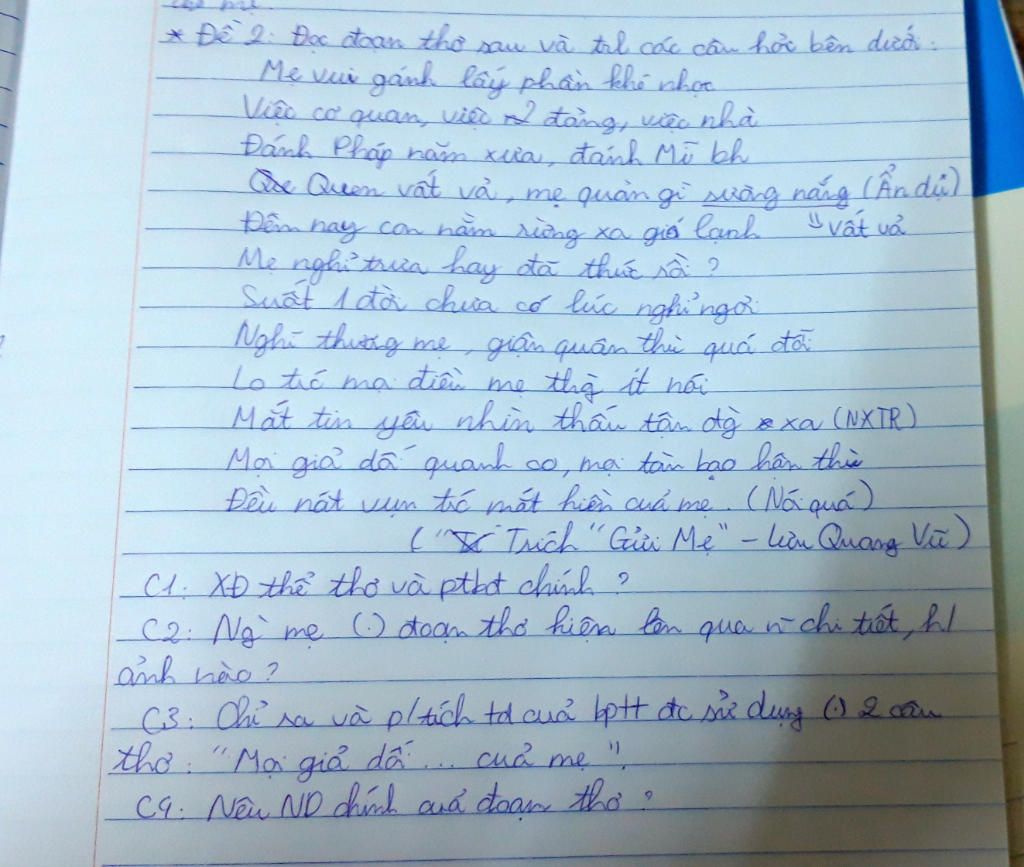 * Đề 2: Đọc đoạn thơ sau và trl các câu hỏi bên dưới:
Mẹ vui gánh lấy phần khó nhọc
Việc cơ quan, việc 2 đảng, việc nhà
Đánh Pháp năm xưa, đánh Mĩ bh
Quen vất vả, mẹ quản gì sương nắng (Ẩn dụ)
Đêm nay con nằm rừng xa gió lạnh vất vả
Mẹ nghỉ trưa hay đã thức rồi?
Suốt 1 đời chưa có lúc nghỉ ngơi
Nghĩ thương mẹ, giận quân thù quá đỗi
Lo trc mọi điều mẹ thg ít nói
Mắt tin yêu nhìn thấu tận đg xa (NXTR)
Mọi giả dối quanh co, mọi tàn bạo hận thù
Đều nát vụn trc mắt hiền của mẹ. (Nói quá)
(Trích "Gửi Mẹ" - Lưu Quang Vũ)
C1: XĐ thể thơ và ptbđ chính?
C2: Ng` mẹ (.) đoạn thơ hiện lên qua n~ chi tiết, h/
ảnh nào?
C3: Chỉ ra và p/tích td của bptt đc sử dụng (.) 2 câu
thơ: "Mọi giả dối ... của mẹ".
C4: Nêu ND chính của đoạn thơ?